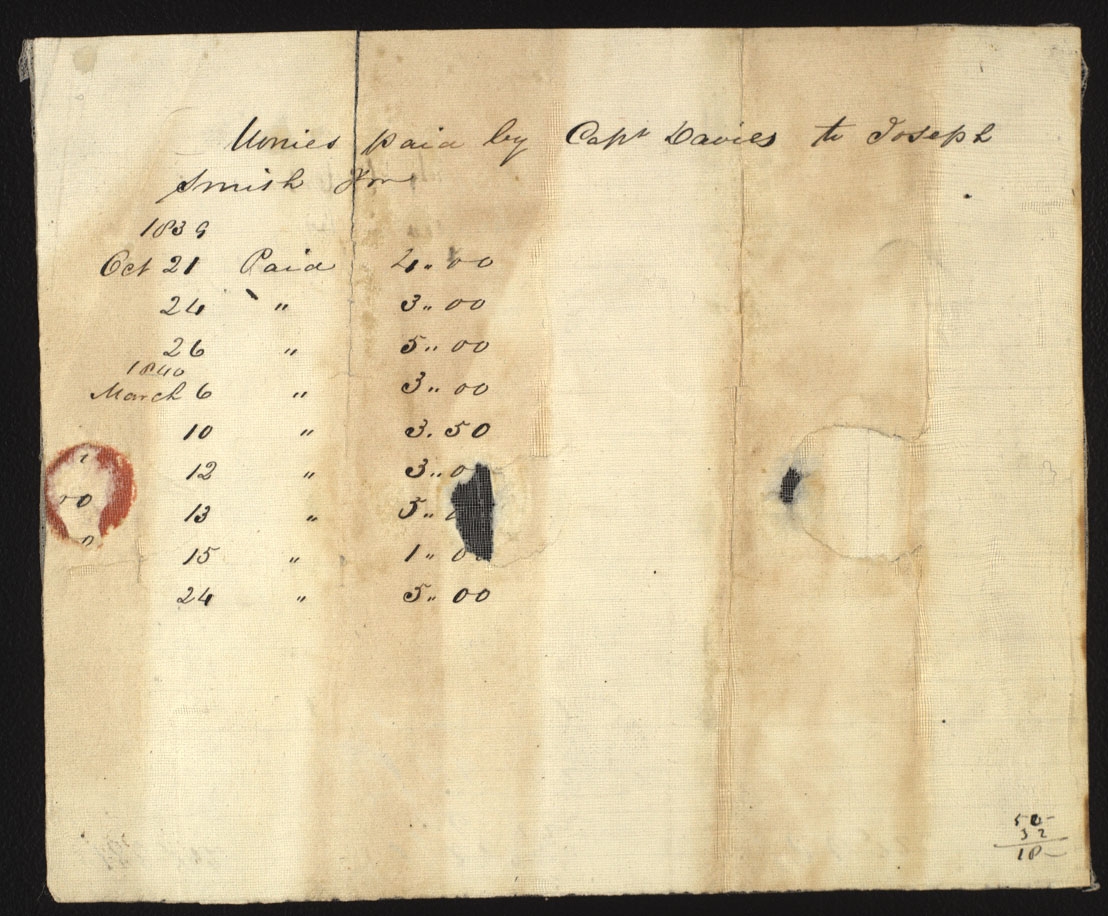 Monies paid by Capt Davies to Joseph
Smith Jnr
1839
Oct 21 Paid 4.. 00
24 " 3.. 00
26 " 5.. 00
1840
March 6 " 3.. 00
10 " 3. 50
12 " 3.. 00
13 " 5..
15 " 1.. 00
24 " 5.. 00
50-
32
18-